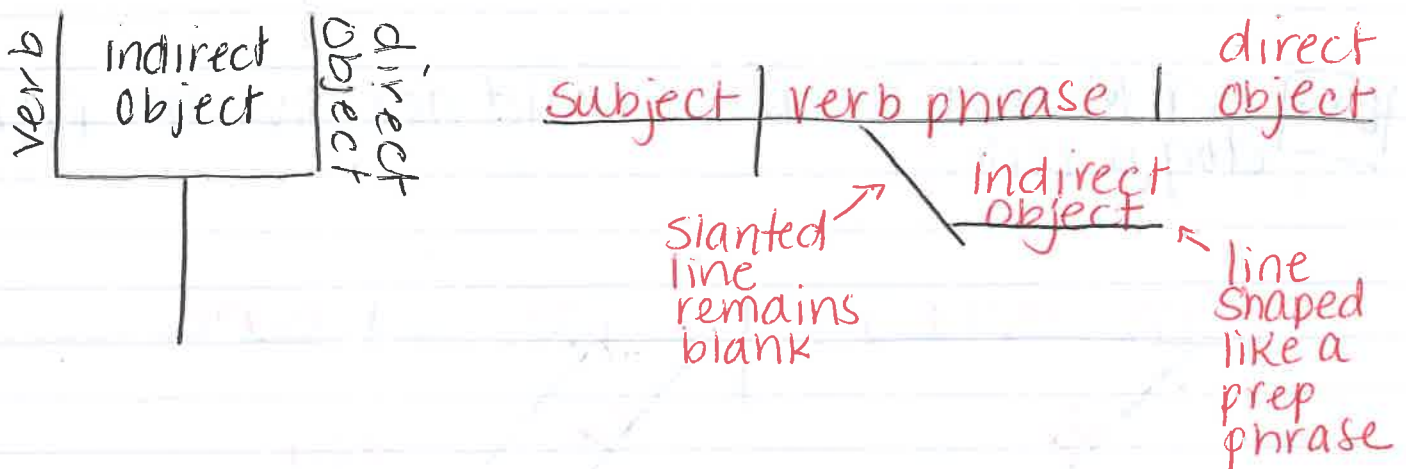 verb
indirect
object
direct
object
subject
verb phrase
direct
object
indirect
object
slanted
line
remains
blank
line
shaped
like a
prep
phrase